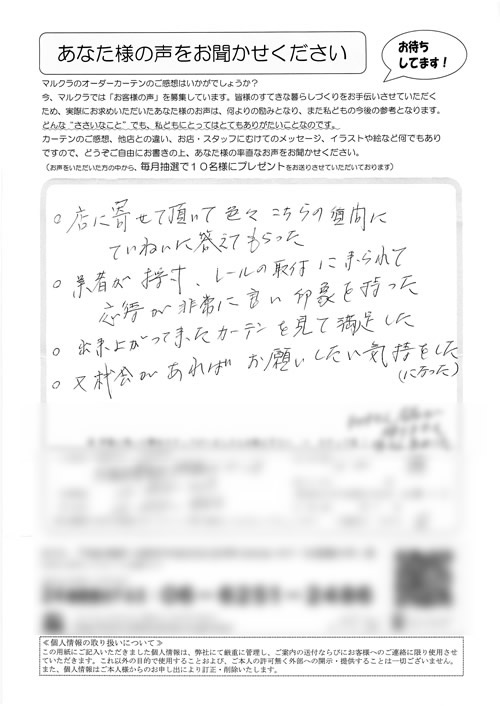 あなた様の声をお聞かせください
お待ち
してます！
マルクラのオーダーカーテンのご感想はいかがでしょうか？
今、マルクラでは「お客様の声」を募集しています。皆様のすてきな暮らしづくりをお手伝いさせていただく
ため、実際にお求めいただいたあなた様のお声は、何よりの励みとなり、また私どもの今後の参考となります。
どんな“ささいなこと”でも、私どもにとってはとてもありがたいことなのです。
カーテンのご感想、他店との違い、お店・スタッフにむけてのメッセージ、イラストや絵など何でもあり
ですので、どうぞご自由にお書きの上、あなた様の率直なお声をお聞かせください。
（お声をいただいた方の中から、毎月抽選で１０名様にプレゼントをお送りさせていただいております）
○ 店に寄せて頂いて色々こちらの質問に
ていねいに答えてもらった
○ 業者が採寸、レールの取付に来られて
応待が非常に良い印象を持った
○ 出来上がって来たカーテンを見て満足した
○ 又機会があればお願いしたい気持をした
(になった)
≪個人情報の取り扱いについて≫
この用紙にご記入いただきました個人情報は、弊社にて厳重に管理し、ご案内の送付ならびにお客様へのご連絡に限り使用させ
ていただきます。これ以外の目的で使用することおよび、ご本人の許可無く外部への開示・提供することは一切ございません。
また、個人情報はご本人様からのお申し出により訂正・削除いたします。